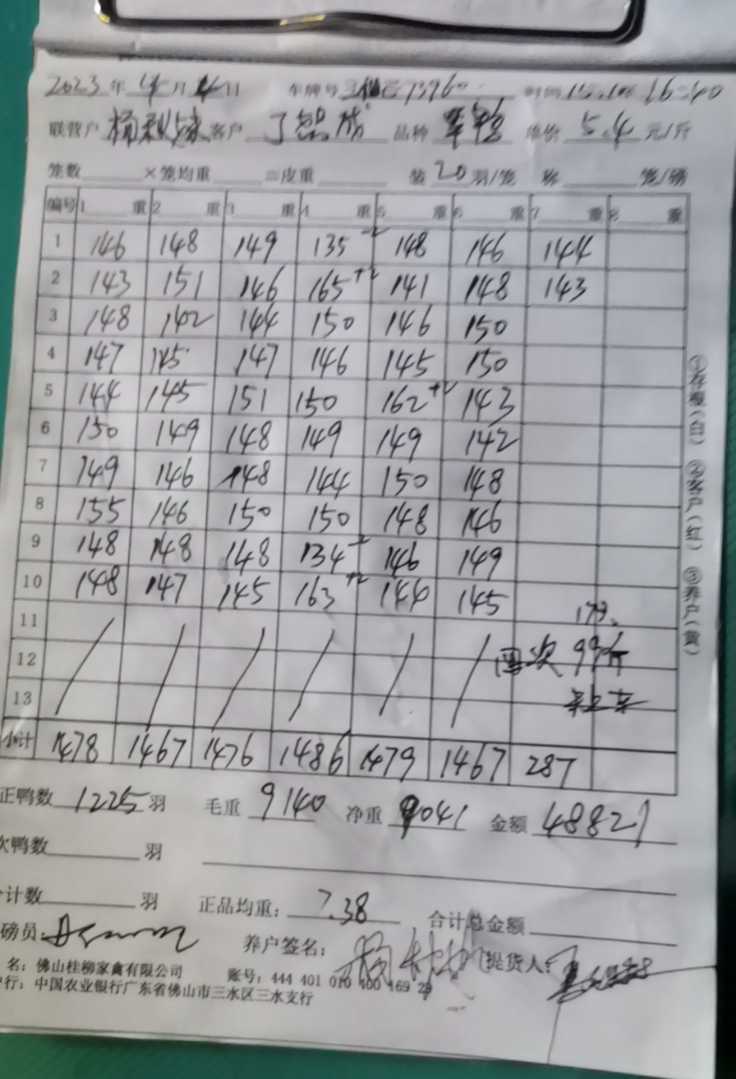 2023年4月 日 车牌号 1396 时间 16:40
联营户 杨 客户 丁 品种 单价 5.4 元/斤
笼数 ×笼均重 =皮重 装 20 羽/笼 称 笼/磅
编号 1 重 2 重 3 重 4 重 5 重 6 重 7 重 8 重
1 146 148 149 135 -2 148 146 144
2 143 151 146 165 +2 141 148 143
3 148 142 144 150 146 150
4 147 145 147 146 145 150
5 144 145 151 150 162 143
6 150 149 148 149 149 142
7 149 146 148 144 150 148
8 155 146 150 150 148 146
9 148 148 148 134 146 149
10 148 147 145 163 +2 144 145
11
12 次 99斤
13
小计 1478 1467 1476 1486 1479 1467 287
正鸭数 1225 羽 毛重 9140 净重 9041 金额 48821
次鸭数 羽
合计数 羽 正品均重: 7.38 合计总金额
磅员: 养户签名: 提货人:
名: 佛山桂柳家禽有限公司 账号: 444 401 010 400 169 29
行: 中国农业银行广东省佛山市三水区三水支行
①存根(白) ②客户(红) ③养户(黄)